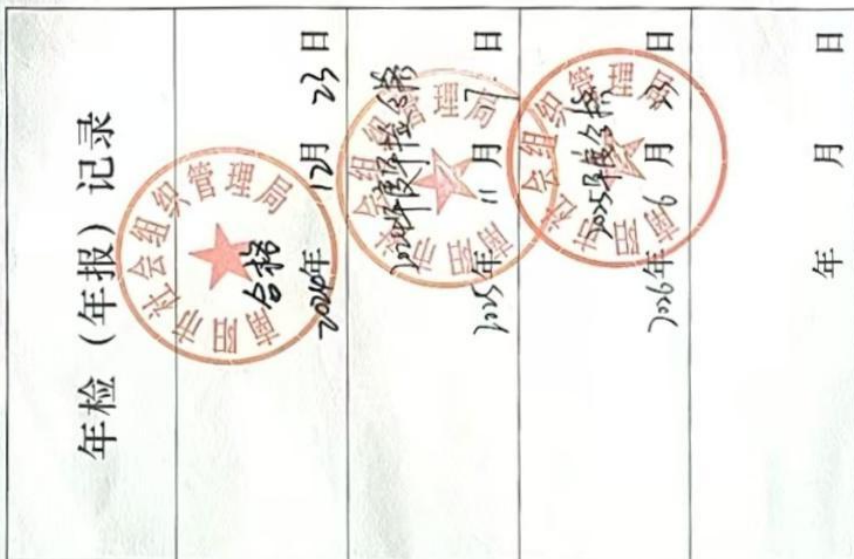 年检（年报）记录
南阳市社会组织管理局
合格
2024年 12月 23日
南阳市社会组织管理局
2024年度年检合格
2025年 11月 7日
南阳市社会组织管理局
2025年度合格
2026年 6月 日
年 月 日